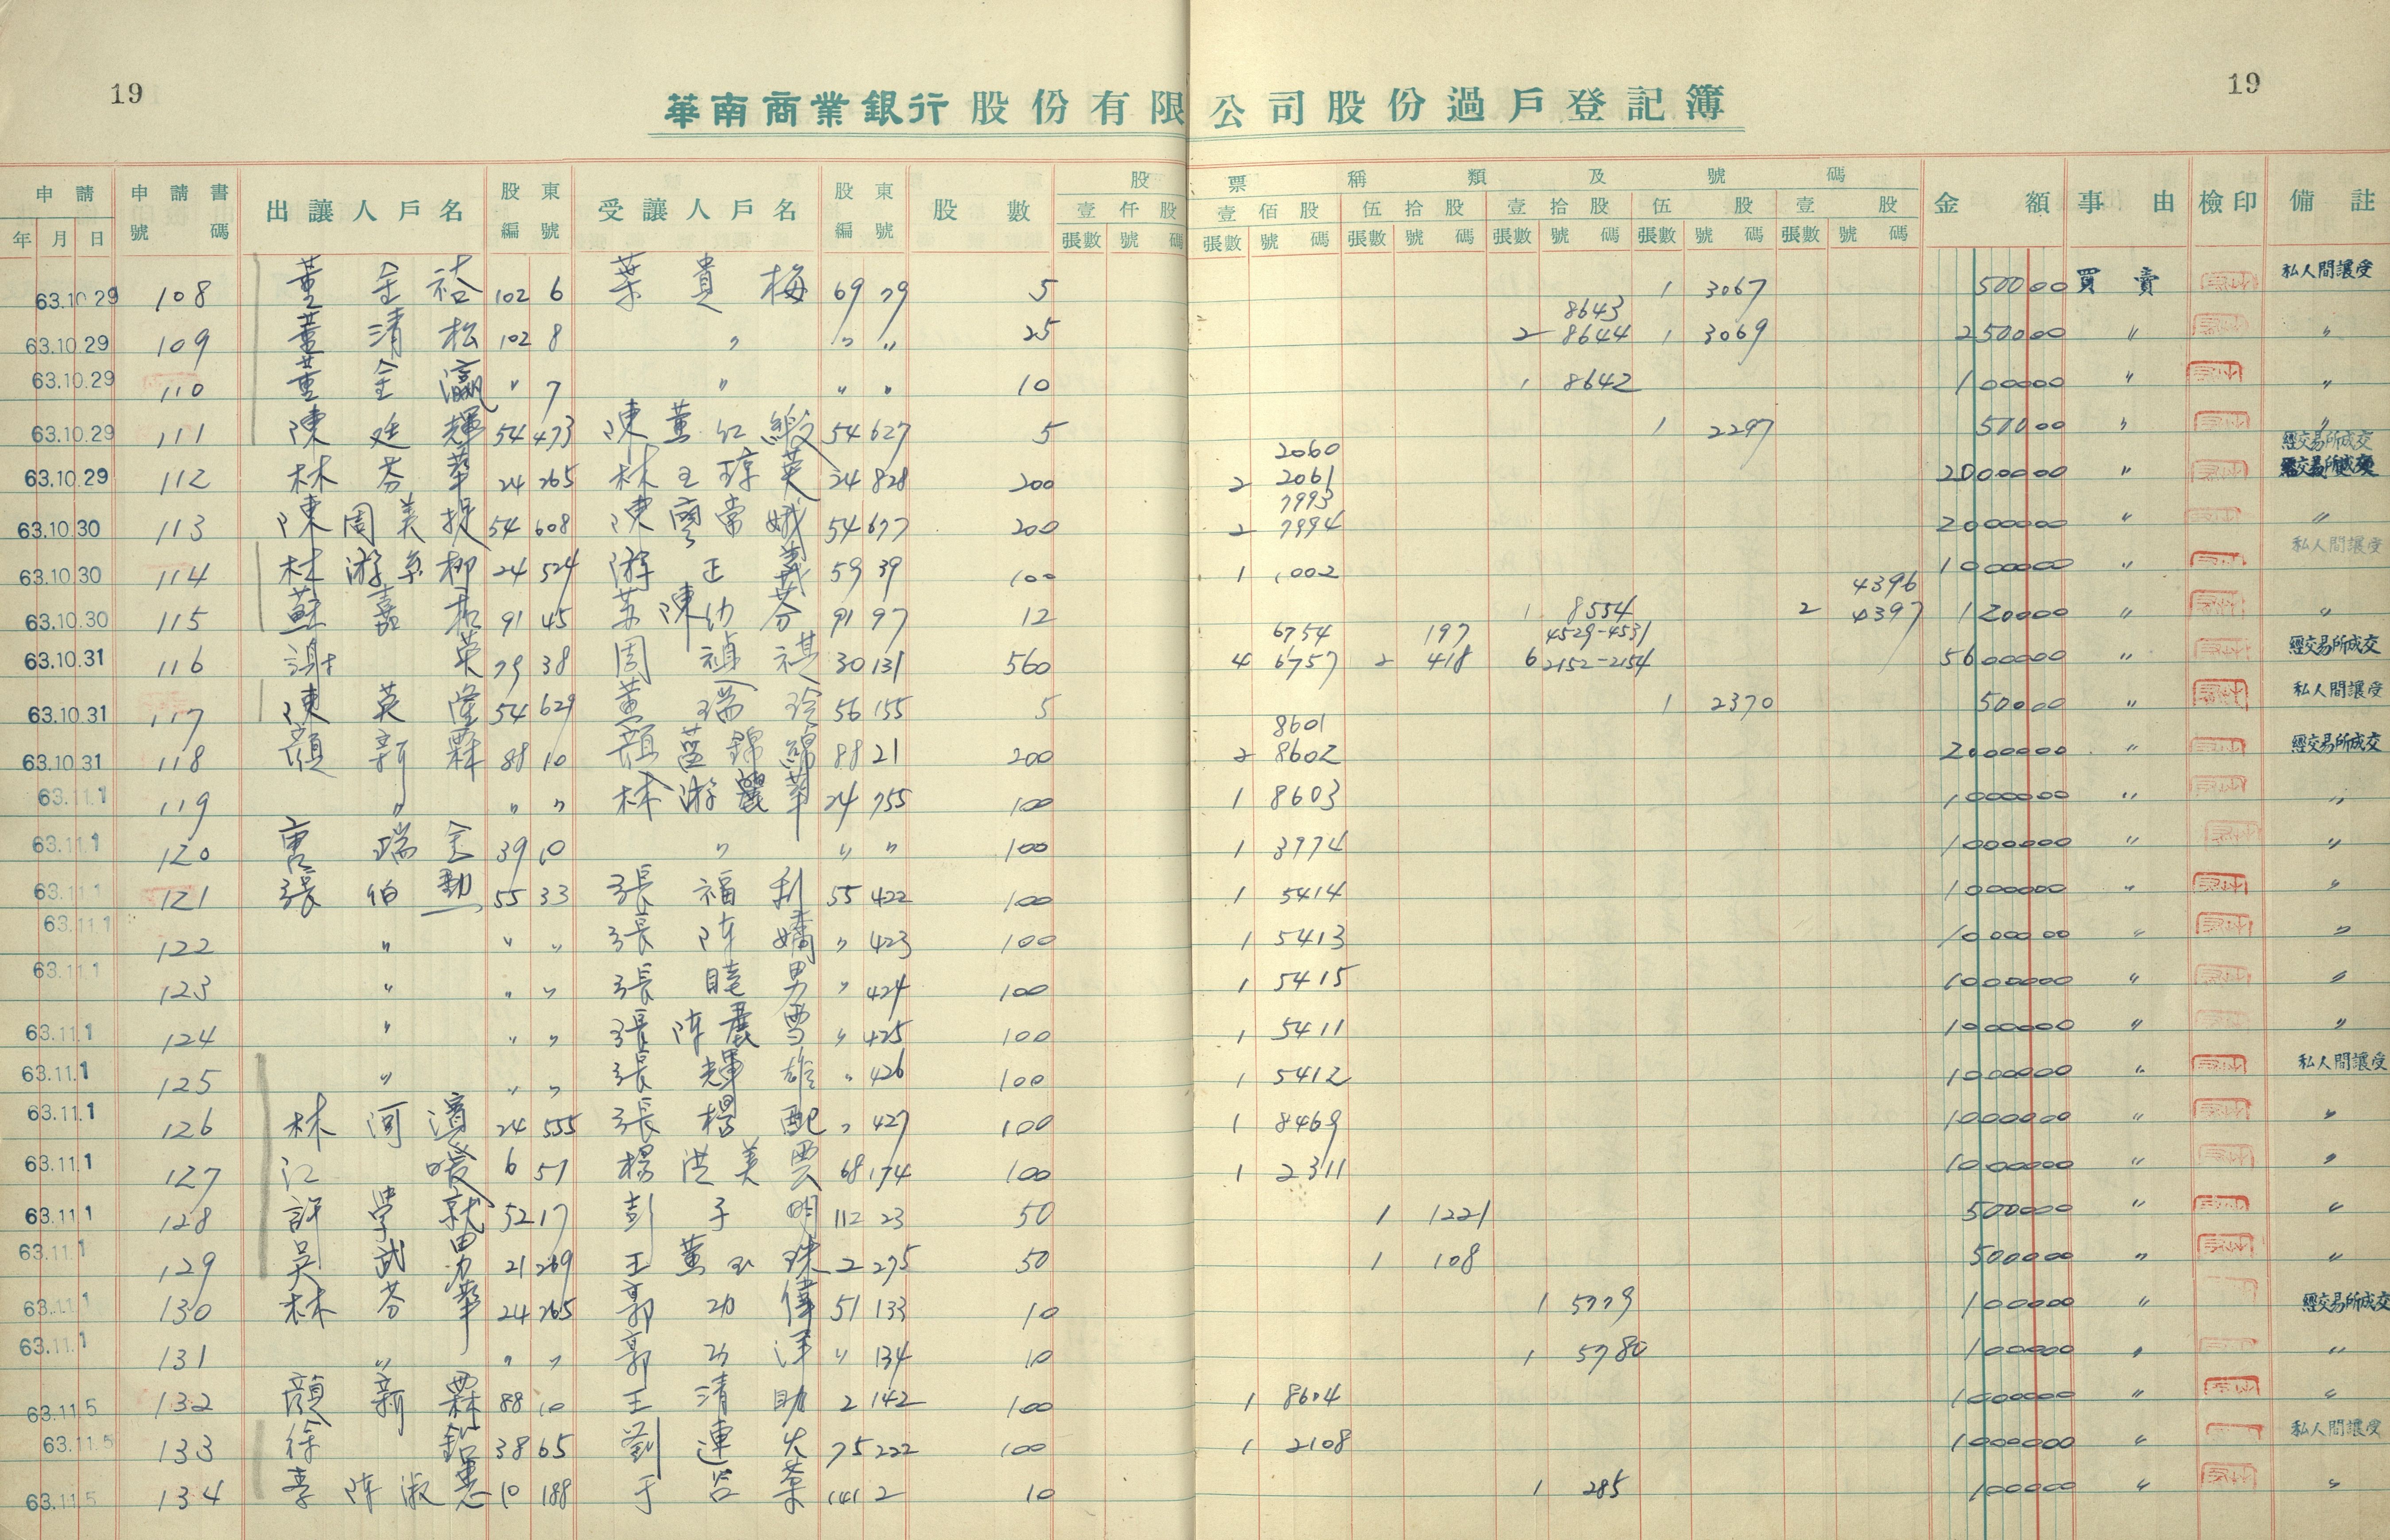 19
19
華南商業銀行股份有限公司股份過戶登記簿
申請 申請書 出讓人戶名 股東 受讓人戶名 股東 股數 股票稱類及號碼 金額 事由 檢印 備註
壹仟股 壹佰股 伍拾股 壹拾股 伍股 壹股
年 月 日 號碼 編號 編號 張數 號碼 張數 號碼 張數 號碼 張數 號碼 張數 號碼 張數 號碼
63.10.29 108 董金裕 102 6 葉貴梅 69 79 5 1 3067 50000 買賣 私人間讓受
8643
63.10.29 109 董清松 102 8 〃 〃 〃 25 2 8644 1 3069 250000 〃 〃
63.10.29 110 董金瀛 〃 7 〃 〃 〃 10 1 8642 100000 〃 〃
63.10.29 111 陳廷輝 54 473 陳董紅緞 54 627 5 1 2297 50000 〃 〃
2060 經交易所成交
63.10.29 112 林芬華 24 265 林王瓊英 24 828 200 2 2061 2000000 〃 經交易所成交
7993
63.10.30 113 陳周美捉 54 608 陳廖常娥 54 677 200 2 7994 2000000 〃 〃
63.10.30 114 林游烏柳 24 524 游正義 59 39 100 1 1002 1000000 〃 私人間讓受
4396
63.10.30 115 蘇嘉 91 45 苏陳幼芬 91 97 12 1 8554 2 4397 120000 〃 〃
6754 197 4529-4531
63.10.31 116 謝英 79 38 周禎祺 30 131 560 4 6757 2 418 6 2152-2154 5600000 〃 經交易所成交
63.10.31 117 陳英隆 54 629 黃瑞玲 56 155 5 1 2370 50000 〃 私人間讓受
8601
63.10.31 118 顏新霖 88 10 顏莒錦綿 88 21 200 2 8602 2000000 〃 經交易所成交
63.11.1 119 〃 〃 〃 林游麗華 24 755 100 1 8603 1000000 〃 〃
63.11.1 120 唐瑞金 39 10 〃 〃 〃 100 1 3974 1000000 〃 〃
63.11.1 121 張伯勳 55 33 張福利 55 422 100 1 5414 1000000 〃 〃
63.11.1 122 〃 〃 〃 張陈嬌 〃 423 100 1 5413 1000000 〃 〃
63.11.1 123 〃 〃 〃 張睦男 〃 424 100 1 5415 1000000 〃 〃
63.11.1 124 〃 〃 〃 張陈麗雪 〃 425 100 1 5411 1000000 〃 〃
63.11.1 125 〃 〃 〃 張輝雄 〃 426 100 1 5412 1000000 〃 私人間讓受
63.11.1 126 林河濱 24 555 張楊配 〃 427 100 1 8469 1000000 〃 〃
63.11.1 127 江暖 6 57 楊洪美雲 68 174 100 1 2311 1000000 〃 〃
63.11.1 128 許學就 52 17 彭子明 112 23 50 1 1221 500000 〃 〃
63.11.1 129 吳武勇 21 269 王董玉珠 2 275 50 1 108 500000 〃 〃
63.11.1 130 林芬華 24 265 郭功偉 51 133 10 1 5779 100000 〃 經交易所成交
63.11.1 131 〃 〃 〃 郭功洋 〃 134 10 1 5780 100000 〃 〃
63.11.5 132 顏新霖 88 10 王清助 2 142 100 1 8604 1000000 〃 〃
63.11.5 133 徐銀 38 65 劉連火 75 222 100 1 2108 1000000 〃 私人間讓受
63.11.5 134 李陈淑惠 10 188 于谷葉 141 2 10 1 285 100000 〃 〃